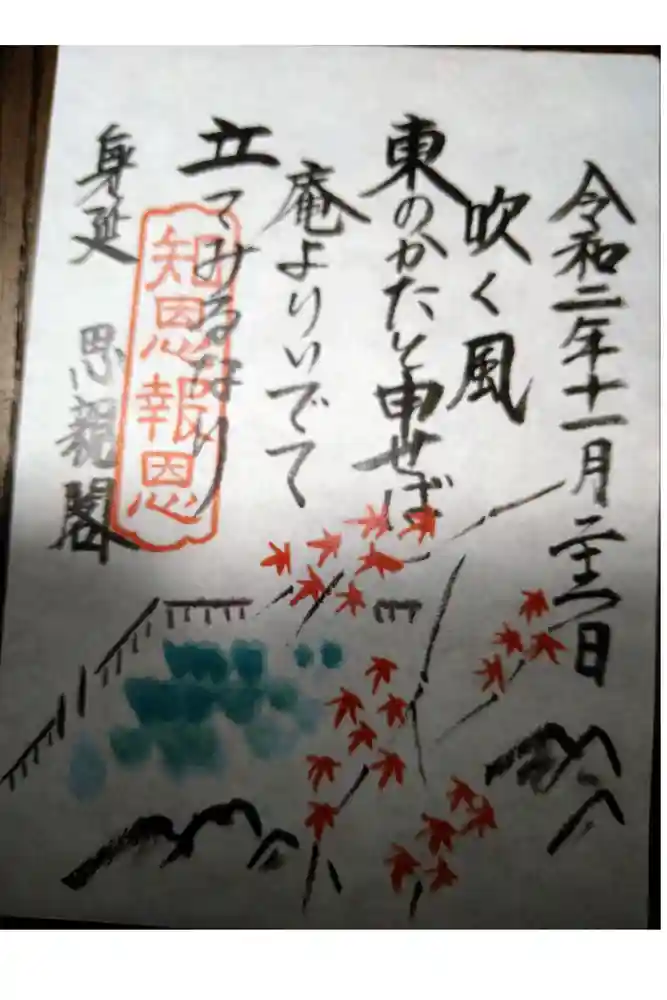 令和二年十一月 日
吹く風
東のかたと申せば
庵よりいでて
立てみるなり
知恩報恩
身延 思親閣